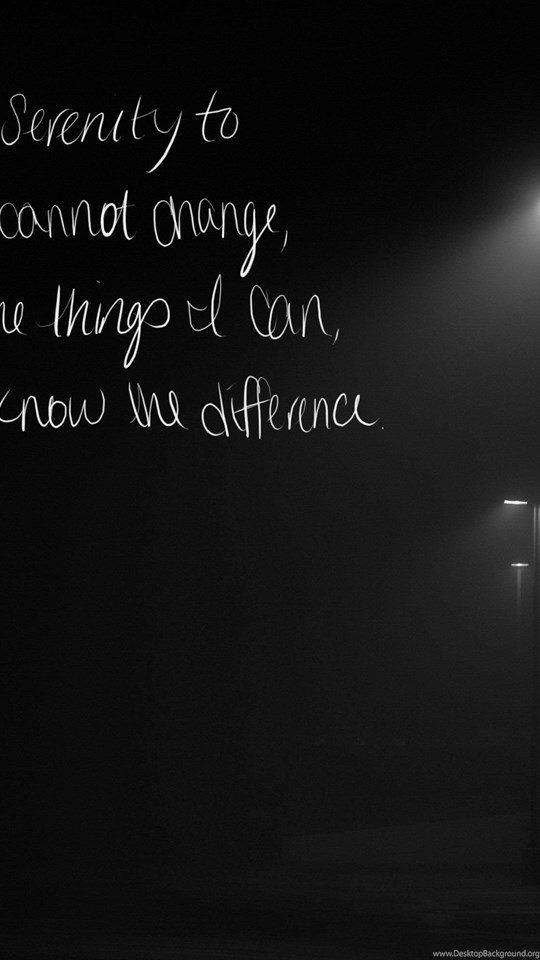 Serenity to
cannot change,
he things I can,
know the difference.
www.DesktopBackground.org